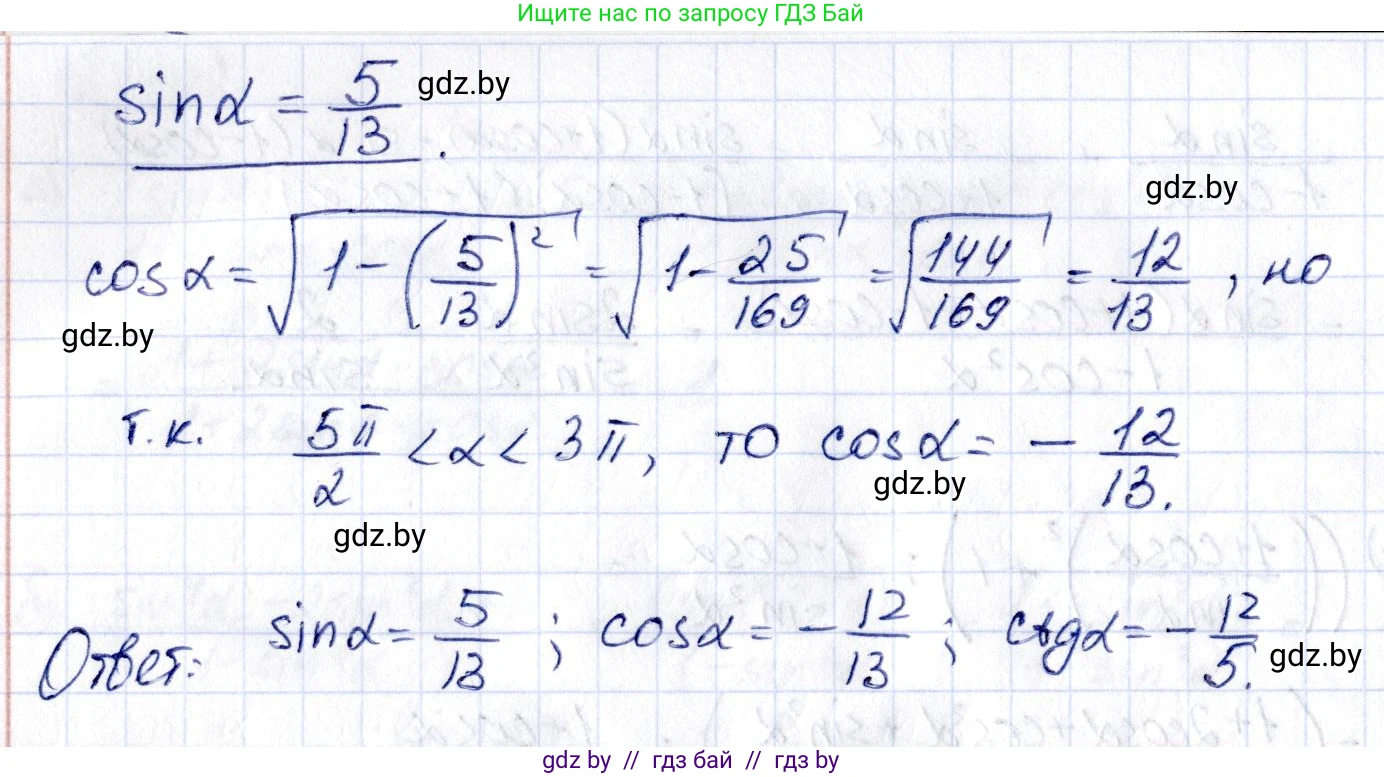 Ищите нас по запросу ГДЗ Бай
sinα = 5/13 .
gdz.by
gdz.by
cosα = √(1 - (5/13)²) = √(1 - 25/169) = √(144/169) = 12/13, но
gdz.by
т.к. 5π/2 < α < 3π, то cosα = - 12/13.
gdz.by
gdz.by
Ответ: sinα = 5/13 ; cosα = - 12/13 ; ctgα = - 12/5.
gdz.by
gdz.by // гдз бай // гдз by